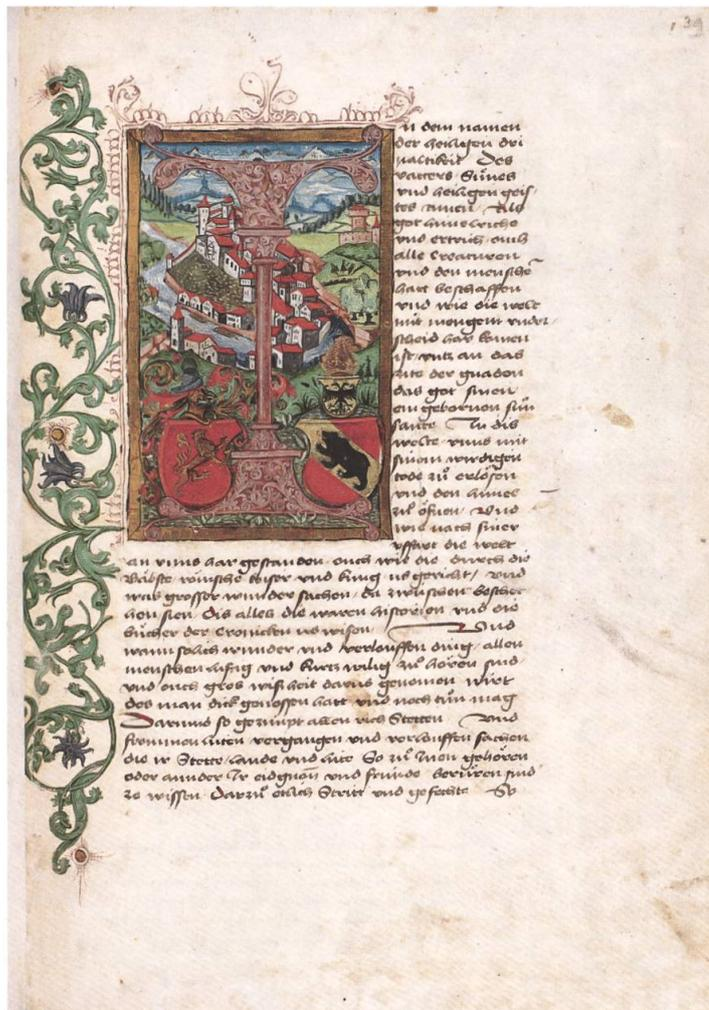 139
In dem namen
der heiligen dri
ualtikeit Des
vatters Sunes
vnd heiligen geis
tes amen Als
got himelriche
vnd ertrich ouch
alle creaturen
vnd den mensche
hatt beschaffen
vnd wie die welt
mit mengem vnder
scheid har komen
ist vntz an das
zite der gnaden
das got sinen
ein gebornen sun
sante In dis
welte vnns mit
sinem wirdigen
tode zů erlösen
vnd den himel
zů öfnen Vnd
wie nach siner
vffart die welt
an vnns har gestanden ouch wie die durch die
Bäbste römische keiser vnd king us gericht / vnd
was grosser wunder sachen da zwüschen beschec
hen sien Dis alles die waren historien vnd die
bücher der Cronicken us wisen Vnd
wann solich wunder vnd verlouffen ding allen
menschen lustig vnd kurtzwilig zů hören sind
vnd ouch gros wisheit darus genomen wirt
des man dick genossen hatt vnd noch tůn mag
Darumb so gezimpt allen rich Stetten Vnd
fromen luten vergangen vnd verlouffen sachen
die ir Stette lande vnd lute So zů Inen gehören
oder annder Ir eidgnon vnd fründe berüren sind
ze wissen Darzů etlich Stritt vnd gefechte So